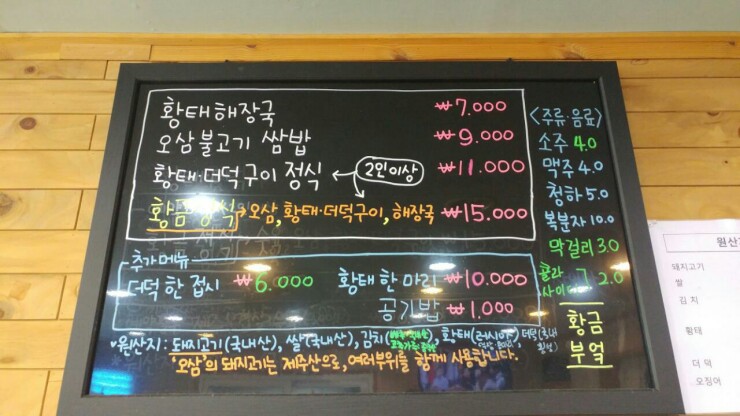 황태해장국 ₩7.000
오삼불고기 쌈밥 ₩9.000
황태·더덕구이 정식 2인이상 ₩11.000
황금정식 → 오삼, 황태·더덕구이, 해장국 ₩15.000
추가메뉴
더덕 한 접시 ₩6.000 황태 한 마리 ₩10.000
공기밥 ₩1.000
•원산지: 돼지고기(국내산), 쌀(국내산), 김치, 황태(러시아), 더덕(국내
'오삼'의 돼지고기는 제주산으로, 여러부위를 함께 사용합니다.
<주류·음료>
소주 4.0
맥주 4.0
청하 5.0
복분자 10.0
막걸리 3.0
콜라
사이다 2.0
황금
부엌
원산
돼지고기
쌀
김치
황태
더덕
오징어